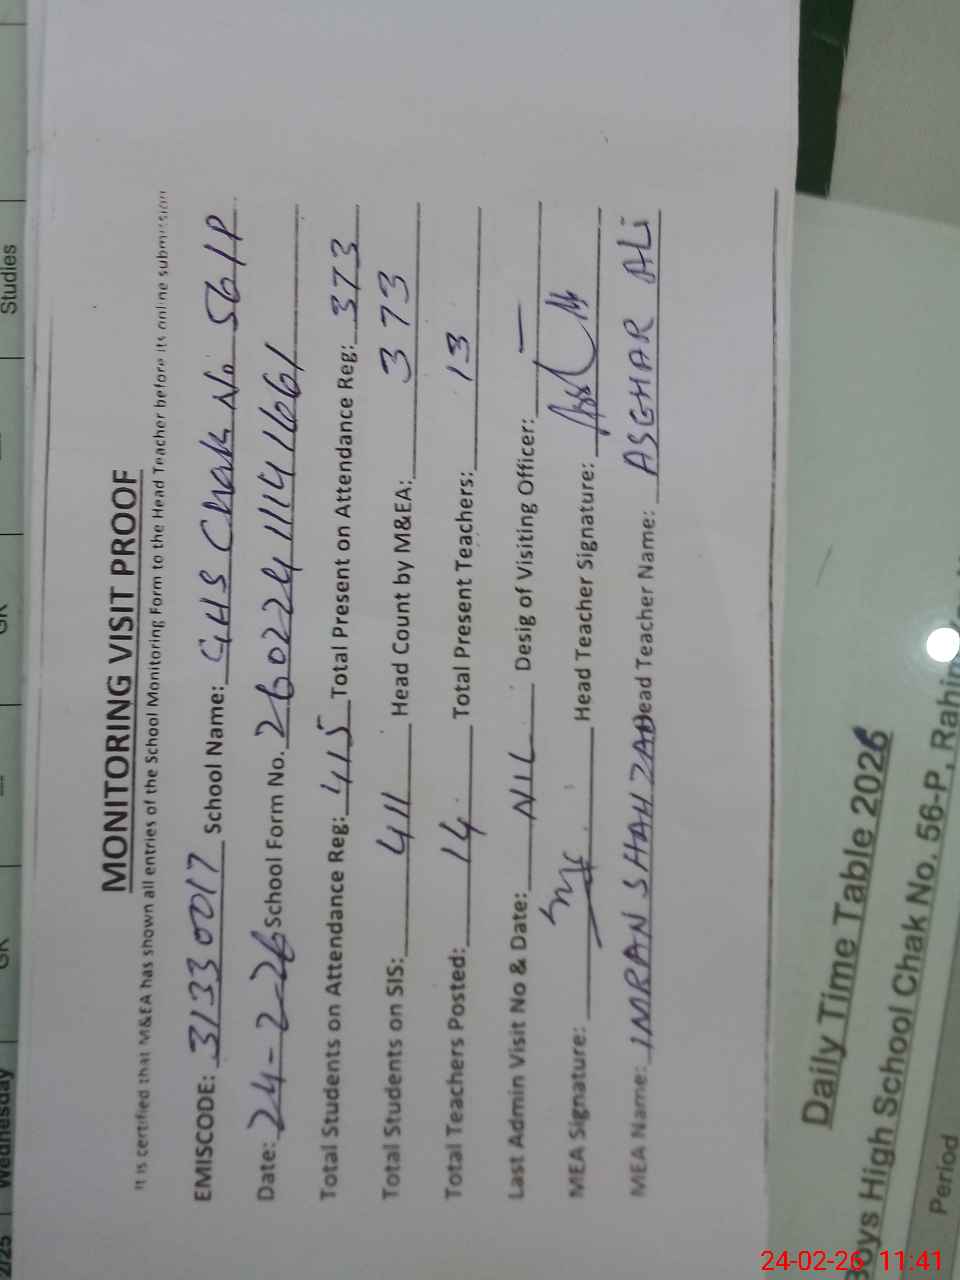 MONITORING VISIT PROOF
It is certified that M&EA has shown all entries of the School Monitoring Form to the Head Teacher before its online submission
EMISCODE: 31330017 School Name: GHS Chak No. 56/P
Date: 24-2-26 School Form No. 260224111141661
Total Students on Attendance Reg: 415 Total Present on Attendance Reg: 373
Total Students on SIS: 411 Head Count by M&EA: 373
Total Teachers Posted: 14 Total Present Teachers: 13
Last Admin Visit No & Date: NIL Desig of Visiting Officer: —
MEA Signature: Head Teacher Signature:
MEA Name: IMRAN SHAHZAD Head Teacher Name: ASGHAR ALi
Daily Time Table 2026
Boys High School Chak No. 56-P, Rahim
Period
Studies
GK
GK
Wednesday
2/25
24-02-26 11:41